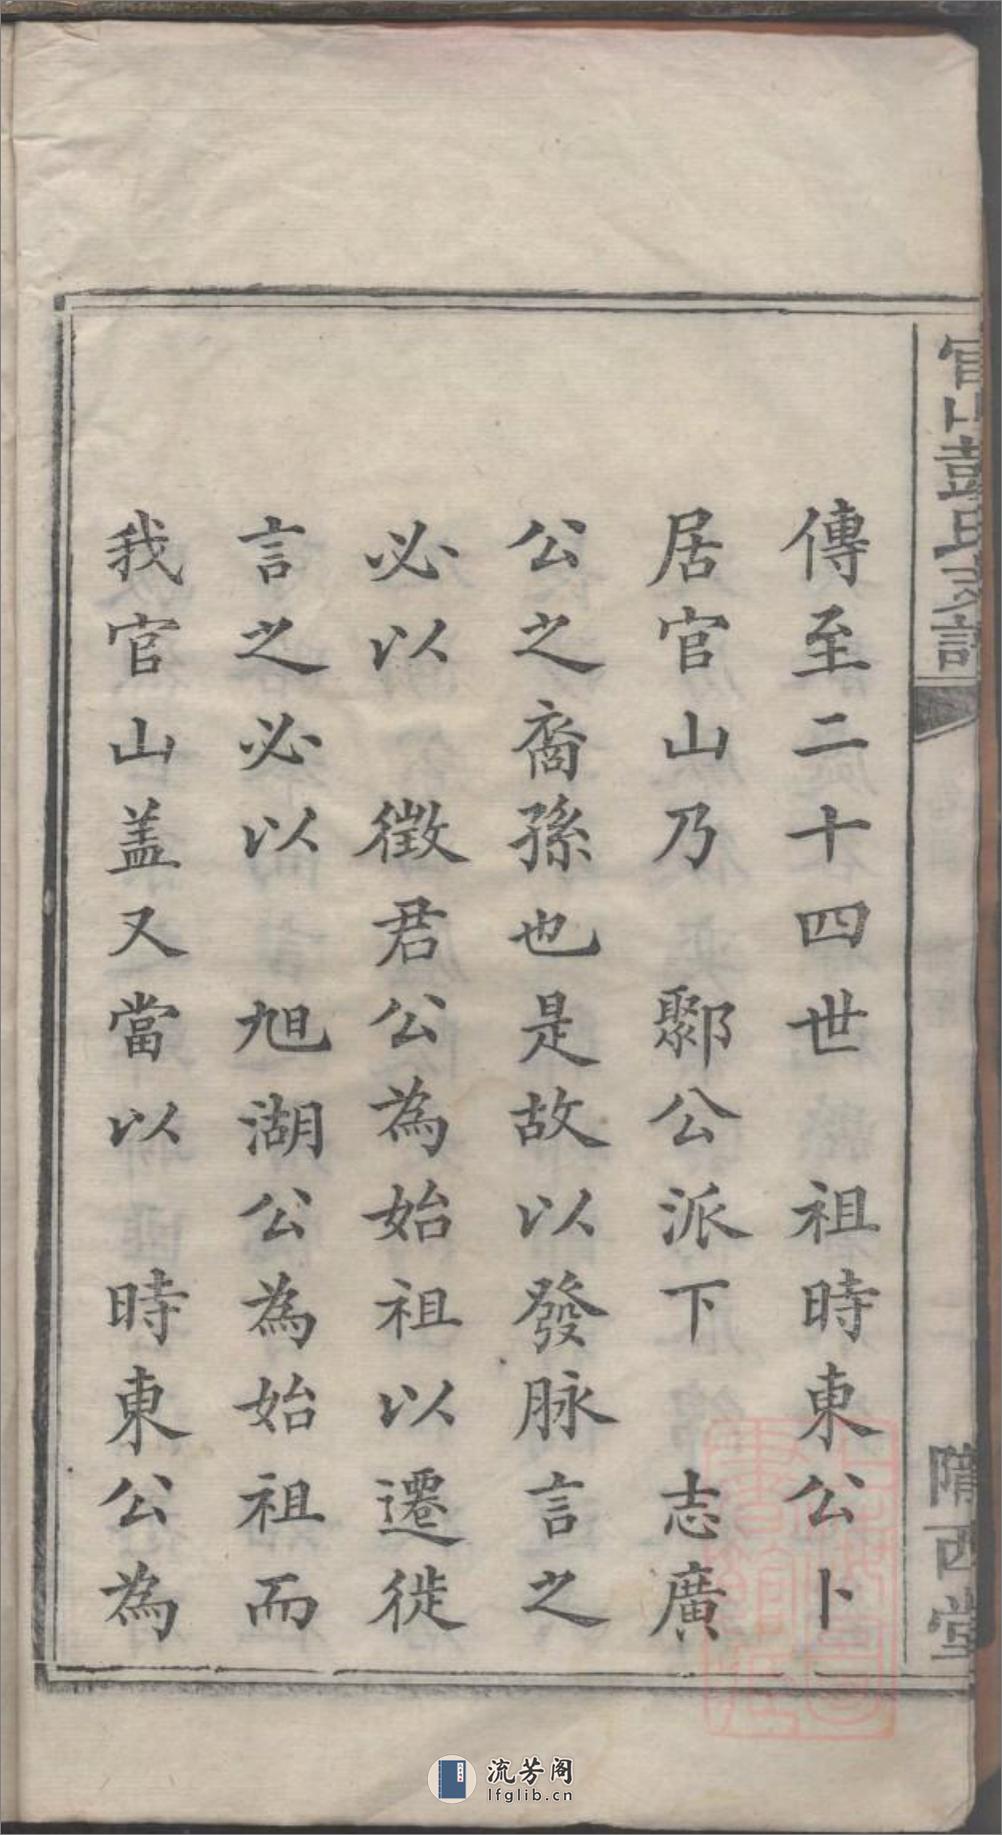 官山彭氏支譜
隋西堂
傳至二十四世　祖時東公卜
居官山乃　鄹公派下　志廣
公之裔孫也是故以發脉言之
必以　徵君公為始祖以遷徙
言之必以　旭湖公為始祖而
我官山盖又當以　時東公為
流芳阁
lfglib.cn